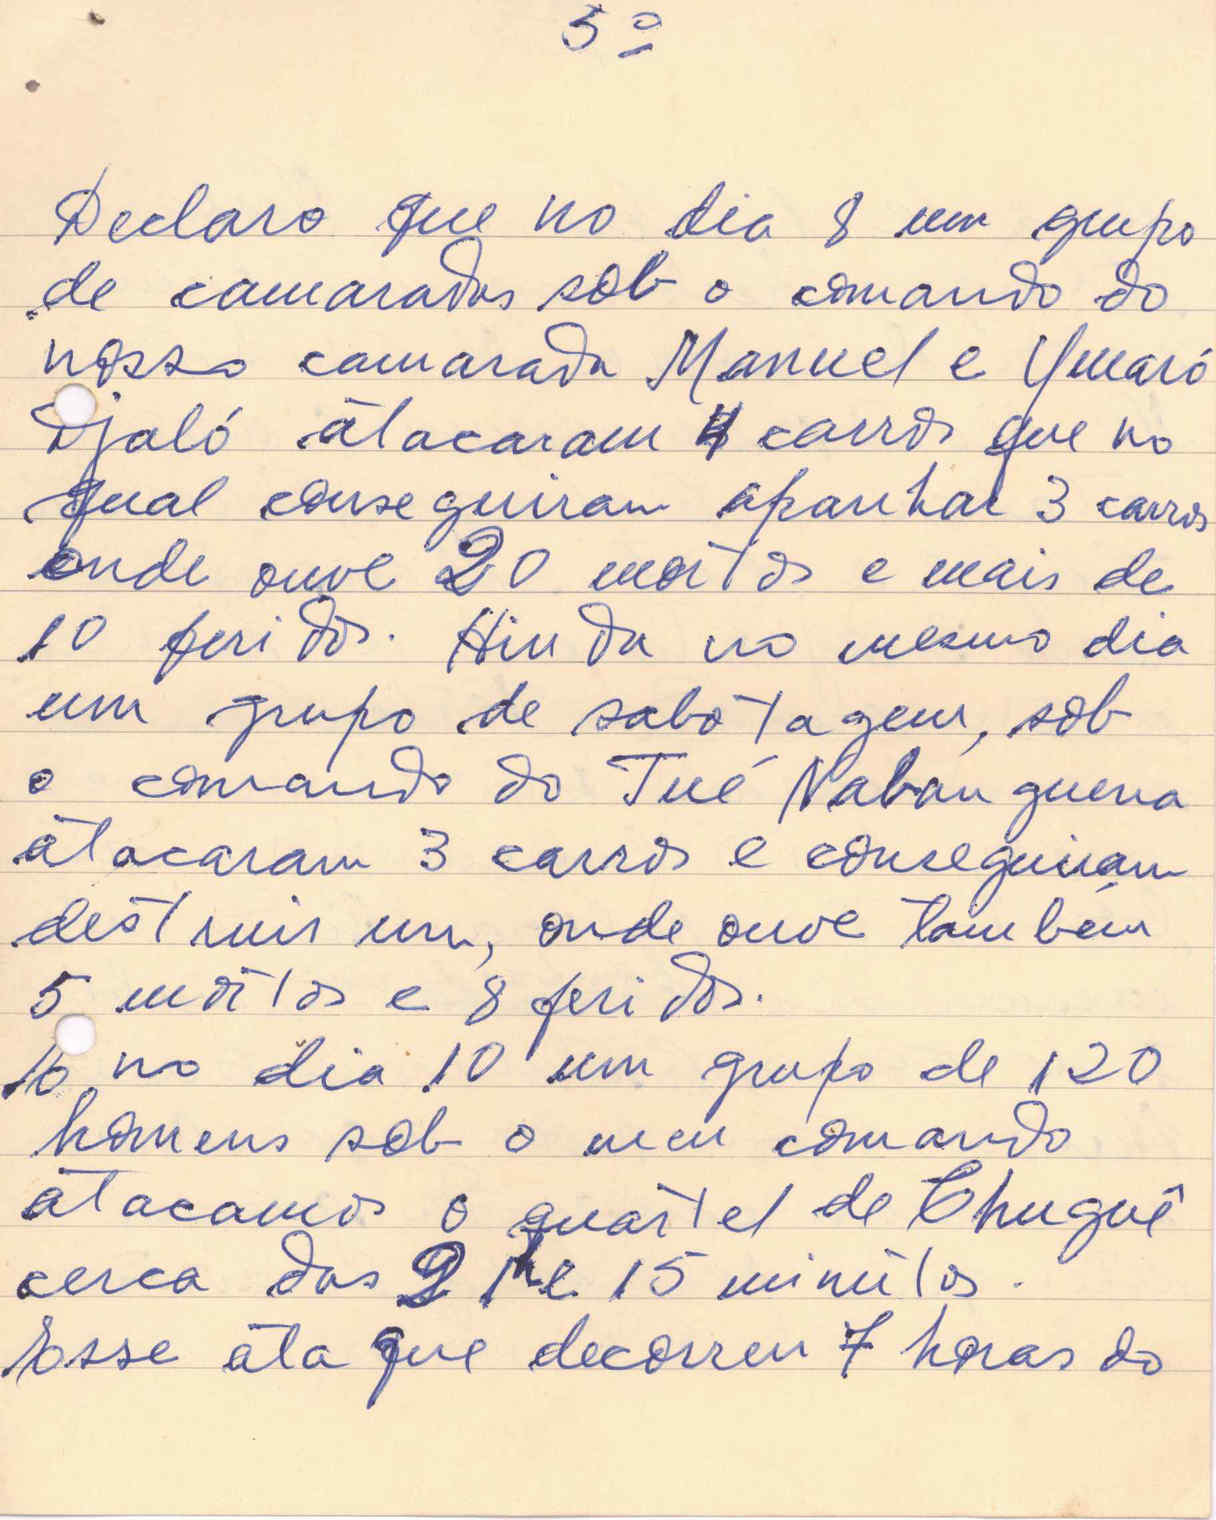 5º
Declaro que no dia 8 um grupo
de camaradas sob o comando do
nosso camarada Manuel e Ymaró
Djaló atacaram 4 carros que no
qual conseguiram apanhar 3 carros
onde ouve 20 mortos e mais de
10 feridos. Hinda no mesmo dia
um grupo de sabotagem, sob
o comando do Tué Nabanguena
atacaram 3 carros e conseguiram
destruir um, onde ouve também
5 mortos e 8 feridos.
no dia 10 um grupo de 120
homens sob o meu comando
atacamos o quartel de Chuguê
cerca das 21 h e 15 minutos.
Esse ataque decorreu 7 horas do